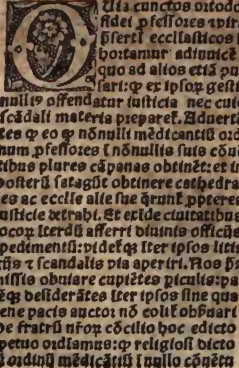 Via cunctos ortodo
fidei ꝓfessores ⁊ vir
p̄serti ecclĩasticos
hortamur adiũicẽ
quo ad alios etiã pu
sari: ꝙ ex ip̃oꝝ gesti
nulliꝰ offendatur iusticia nec cui
scãdali materia preparet̃. Aduertẽ
tes ꝙ eo ꝙ nõnulli mẽdicantiũ ord
num ꝓfessores ĩ nõnullis suis cõue
tibus plures cãpanas obtinẽt: et in
posterũ satagũt obtinere cathedra
les ac ecclie alie sue q̃runt̃ ꝓpterea
iusticie detrahi. Et exĩde ciuitatibus
locoꝝ ĩterdũ afferri diuinis officijs
pedimentũ: videlꝫ ĩter ip̃os litig
gijs ⁊ scandalis via aperiri. Nos
missis obuiare cupiẽtes piculis: pa
ceꝫ desiderãtes ĩter ip̃os sine qua
bene pacis auctor nõ colit̃
de fratrũ nr̃oꝝ cõcilio hoc edicto
petuo ordĩamus: ꝙ religiosi dicto
ordinũ mẽdicãtiũ ĩ nullo cõuẽtu